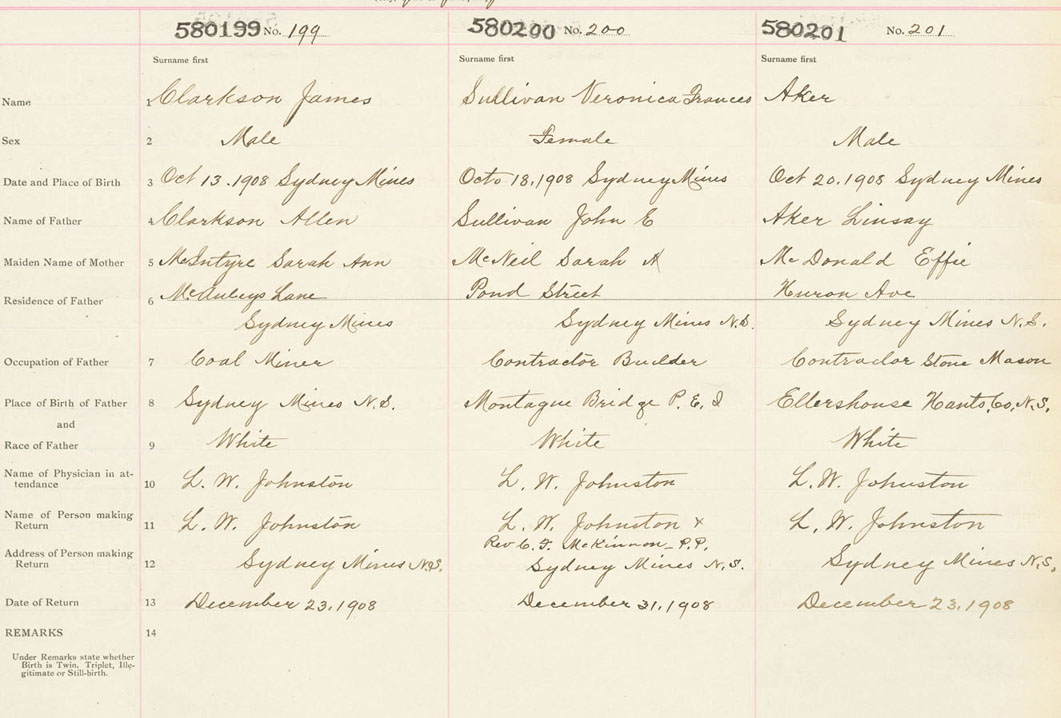 580199 No. 199 580200 No. 200 580201 No. 201
Surname first Surname first Surname first
Name 1 Clarkson James Sullivan Veronica Frances Aker
Sex 2 Male Female Male
Date and Place of Birth 3 Oct 13. 1908 Sydney Mines Octo 18, 1908 Sydney Mines Oct 20. 1908 Sydney Mines
Name of Father 4 Clarkson Allen Sullivan John E Aker Linsay
Maiden Name of Mother 5 McIntyre Sarah Ann McNeil Sarah A McDonald Effie
Residence of Father 6 McAuleys Lane Pond Street Huron Ave
Sydney Mines Sydney Mines N.S. Sydney Mines N.S.
Occupation of Father 7 Coal Miner Contractor Builder Contractor Stone Mason
Place of Birth of Father 8 Sydney Mines N.S. Montague Bridge P. E. I Ellershouse Hants, Co, N.S.
and
Race of Father 9 White White White
Name of Physician in at-
tendance 10 L. W. Johnston L. W. Johnston L. W. Johnston
Name of Person making
Return 11 L. W. Johnston L. W. Johnston + L. W. Johnston
Rev C. F. McKinnon - P.P.
Address of Person making
Return 12 Sydney Mines N.S. Sydney Mines N.S. Sydney Mines N.S.
Date of Return 13 December 23, 1908 December 31, 1908 December 23, 1908
REMARKS 14
Under Remarks state whether
Birth is Twin, Triplet, Ille-
gitimate or Still-birth.